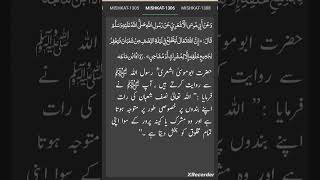 MISHKAT-1305 MISHKAT-1306 MISHKAT-1308
وَعَنْ أَبِي مُوسَى الْأَشْعَرِيِّ عَنْ رَسُولِ اللَّهِ صَلَّى اللَّهُ عَلَيْهِ وَسَلَّمَ
قَالَ: «إِنَّ اللَّهَ تَعَالَى لَيَطَّلِعُ فِي لَيْلَةِ النِّصْفِ مِنْ شَعْبَانَ فَيَغْفِرُ
لِجَمِيعِ خَلْقِهِ إِلَّا لِمُشْرِكٍ أَوْ مُشَاحِنٍ» . رَوَاهُ ابْن مَاجَه
حضرت ابوموسیٰ اشعری ؓ رسول اللہ ﷺ
سے روایت کرتے ہیں ، آپ ﷺ نے
فرمایا :’’ اللہ تعالیٰ نصف شعبان کی رات
اپنے بندوں پر خصوصی طور پر متوجہ ہوتا
ہے اور وہ مشرک یا کینہ پرور کے سوا اپنی
تمام مخلوق کو بخش دیتا ہے ۔‘‘
XRecorder